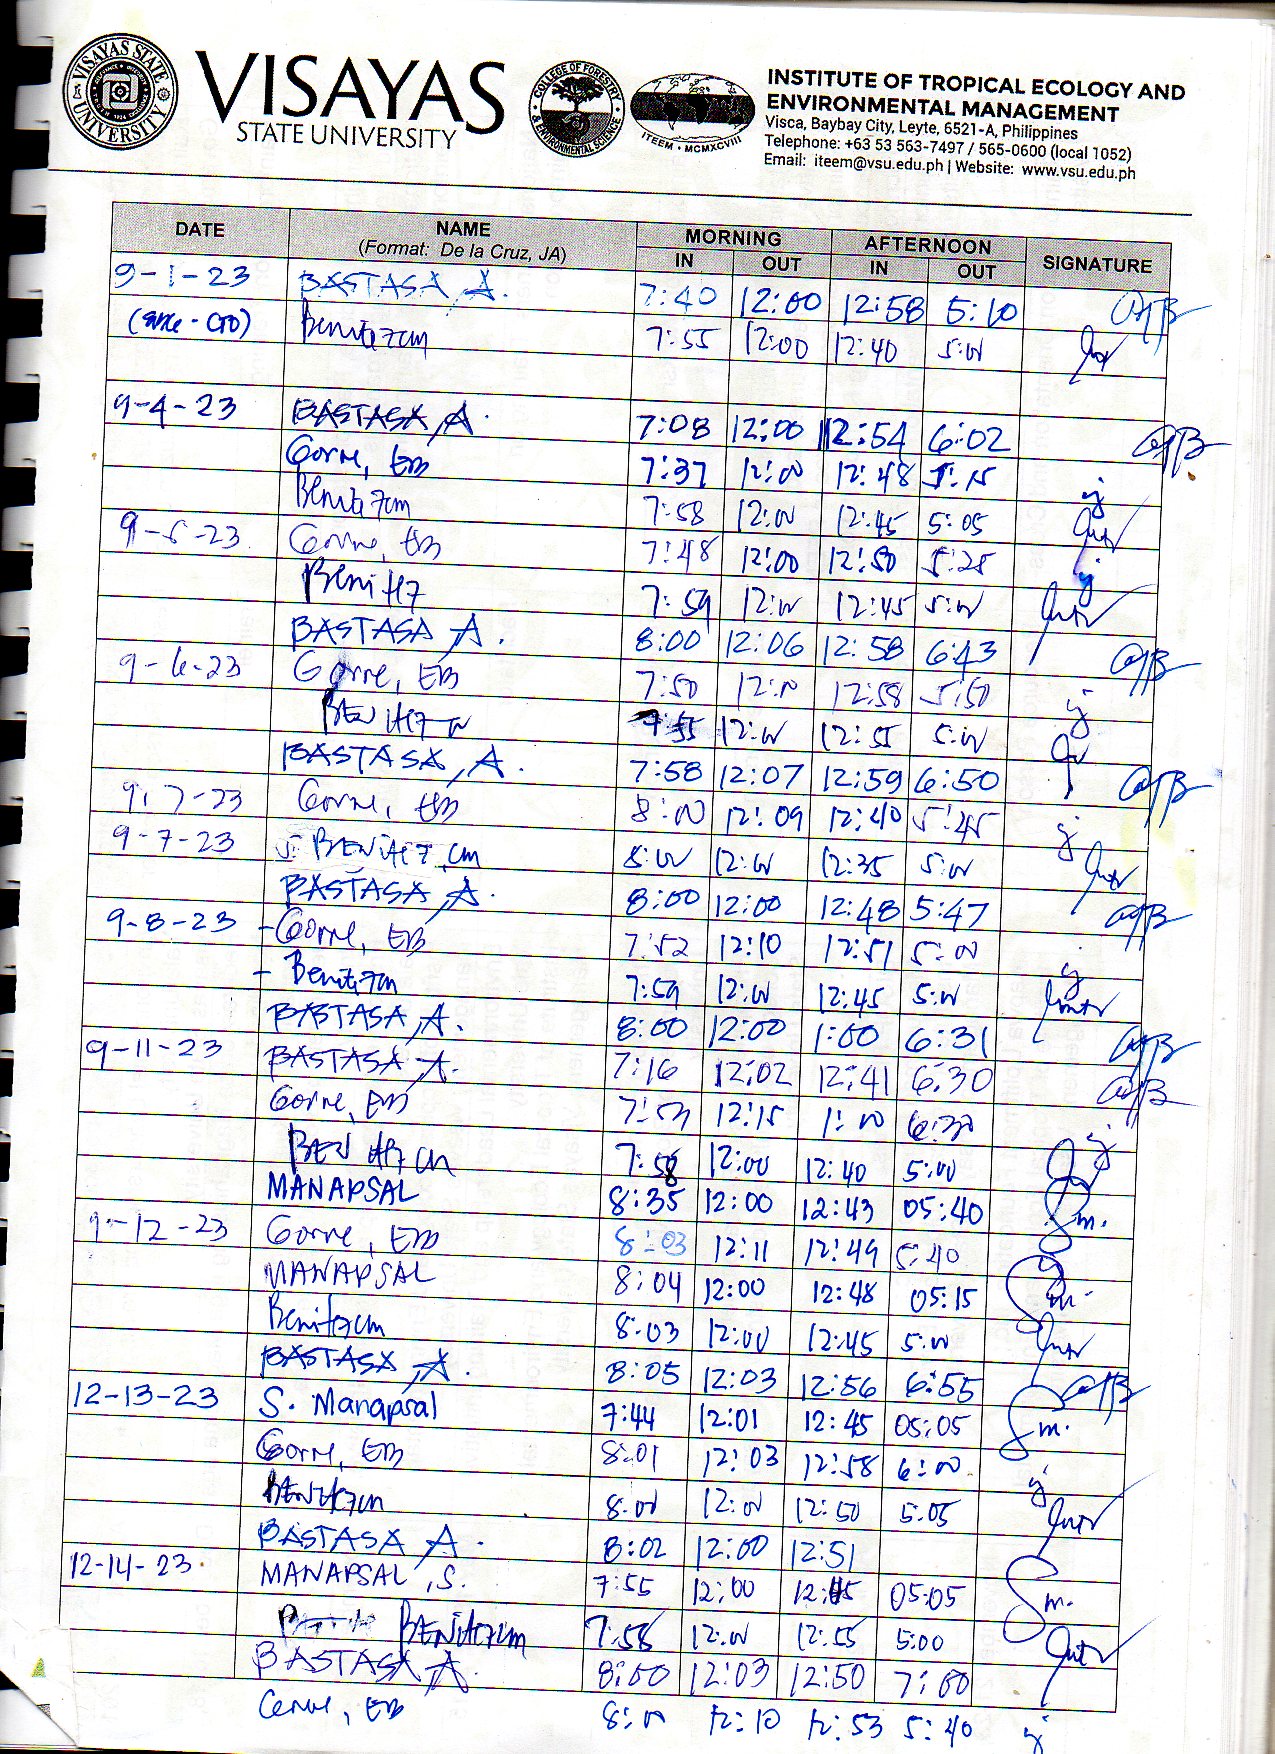 VISAYAS STATE UNIVERSITY
VISAYAS
STATE UNIVERSITY
COLLEGE OF FORESTRY & ENVIRONMENTAL SCIENCE
ITEEM • MCMXCVIII
INSTITUTE OF TROPICAL ECOLOGY AND
ENVIRONMENTAL MANAGEMENT
Visca, Baybay City, Leyte, 6521-A, Philippines
Telephone: +63 53 563-7497 / 565-0600 (local 1052)
Email: iteem@vsu.edu.ph | Website: www.vsu.edu.ph
DATE NAME MORNING AFTERNOON SIGNATURE
(Format: De la Cruz, JA) IN OUT IN OUT
9-1-23 BASTASA, A. 7:40 12:00 12:58 5:10
Benitez cm 7:55 12:00 12:40 5:00
9-4-23 BASTASA, A. 7:08 12:00 12:54 6:02
Gorne, EB 7:37 12:00 12:48 5:15
Benitez cm 7:58 12:00 12:45 5:05
9-5-23 Gorne, EB 7:48 12:00 12:50 5:25
Benitez 7:59 12:00 12:45 5:00
BASTASA, A. 8:00 12:06 12:58 6:43
9-6-23 Gorne, EB 7:50 12:10 12:58 5:50
BENITEZ cm 7:55 12:00 12:55 5:00
BASTASA, A. 7:58 12:07 12:59 6:50
9-7-23 Gorne, EB 8:00 12:09 12:40 5:45
9-7-23 BENITEZ, cm 8:00 12:00 12:35 5:00
BASTASA, A. 8:00 12:00 12:48 5:47
9-8-23 - Gorne, EB 7:52 12:10 12:51 5:00
- Benitez cm 7:59 12:00 12:45 5:00
BASTASA, A. 8:00 12:00 1:00 6:31
9-11-23 BASTASA, A. 7:16 12:02 12:41 6:30
Gorne, EB 7:53 12:15 1:00 6:30
BENITEZ cm 7:58 12:00 12:40 5:00
MANAPSAL 8:35 12:00 12:43 05:40
9-12-23 Gorne, EB 8:03 12:11 12:49 5:40
MANAPSAL 8:04 12:00 12:48 05:15
Benitez cm 8:03 12:00 12:45 5:00
BASTASA, A. 8:05 12:03 12:56 6:55
12-13-23 S. Manapsal 7:44 12:01 12:45 05:05
Gorne, EB 8:01 12:03 12:58 6:00
BENITEZ cm 8:00 12:00 12:50 5:05
BASTASA, A. 8:02 12:00 12:51
12-14-23 MANAPSAL, S. 7:55 12:00 12:45 05:05
BENITEZ cm 7:58 12:00 12:55 5:00
BASTASA, A. 8:00 12:03 12:50 7:00
Gorne, EB 8:00 12:10 12:53 5:40